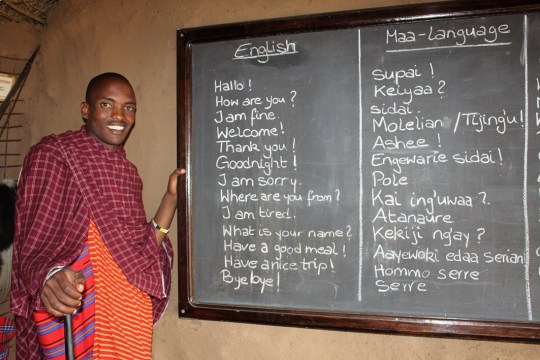 English
Hallo!
How are you?
I am fine.
Welcome!
Thank you!
Goodnight!
I am sorry.
Where are you from?
I am tired.
What is your name?
Have a good meal!
Have a nice trip!
Bye bye!
Maa-language
Supai!
Keiyaa?
sidai.
Molelian / Tijing'u!
Ashee!
Engewarie sidai!
Pole
Kai ing'uwaa?
Atanaure
Kekiji ngay?
Aayewoki edaa serian
Hommo serre
Serre